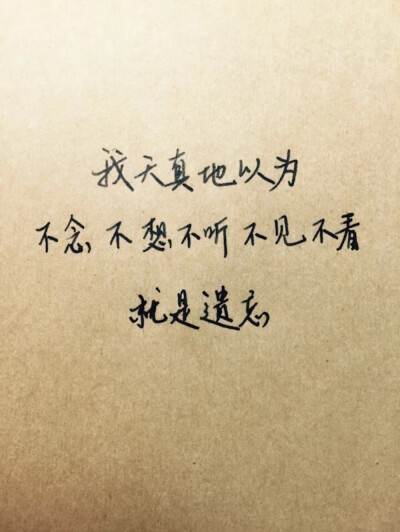 我天真地以为
不念不想不听不见不看
就是遗忘